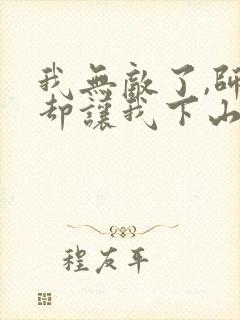 我無敵了,師
却讓我下山
程友平